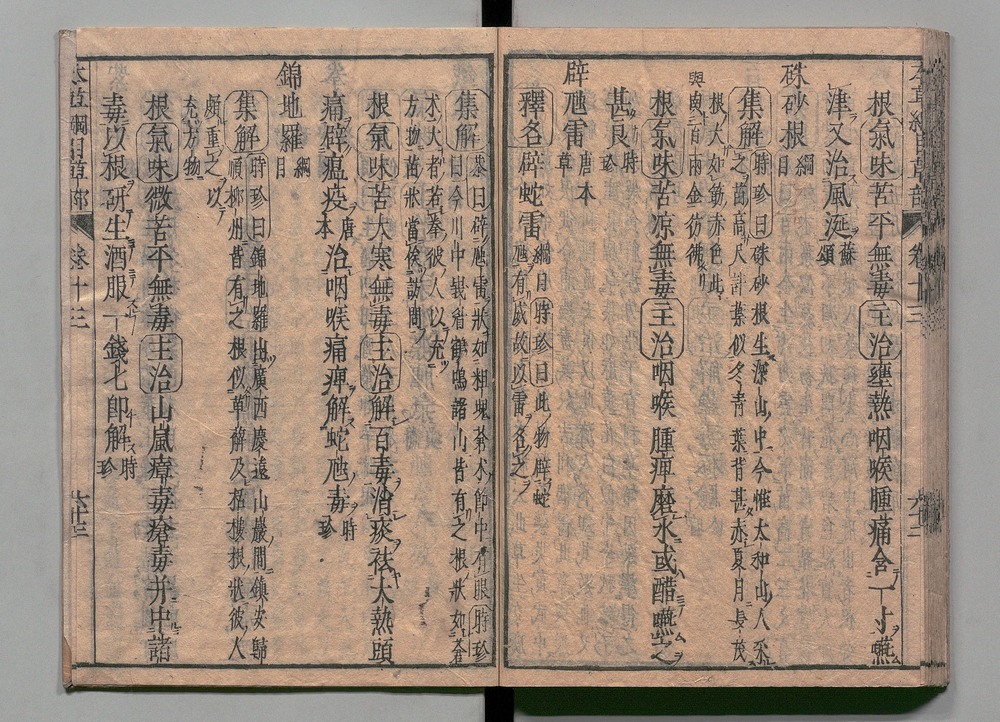 根氣味苦平無毒主治壅熱咽喉腫痛含一寸嚥
津又治風涎蘇頌
硃砂根綱目
集解時珍曰硃砂根生深山中今惟太和山人采
之苗高尺許葉似冬青葉背甚赤夏月長茂
根大如筯赤色此
與百兩金彷彿
根氣味苦凉無毒主治咽喉腫痺磨水或醋嚥之
甚良時珍
辟虺雷唐本草
釋名辟蛇雷綱目時珍曰此物辟蛇
虺有威故以雷名之
集解恭曰辟虺雷狀如粗塊蒼术節中有眼時珍
曰今川中峩眉鶴鳴諸山皆有之根狀如蒼
术大者若拳彼人以充
方物苗狀當俟訪問
根氣味苦大寒無毒主治解百毒消痰祛大熱頭
痛辟瘟疫唐本治咽喉痛痺解蛇虺毒時珍
錦地羅綱目
集解時珍曰錦地羅出廣西慶遠山巖間鎮安歸
順柳州皆有之根似萆薢及栝樓根狀彼人
頗重之以
充方物
根氣味微苦平無毒主治山嵐瘴毒瘡毒并中諸
毒以根研生酒服一錢匕即解時珍
本草綱目草部 卷十三